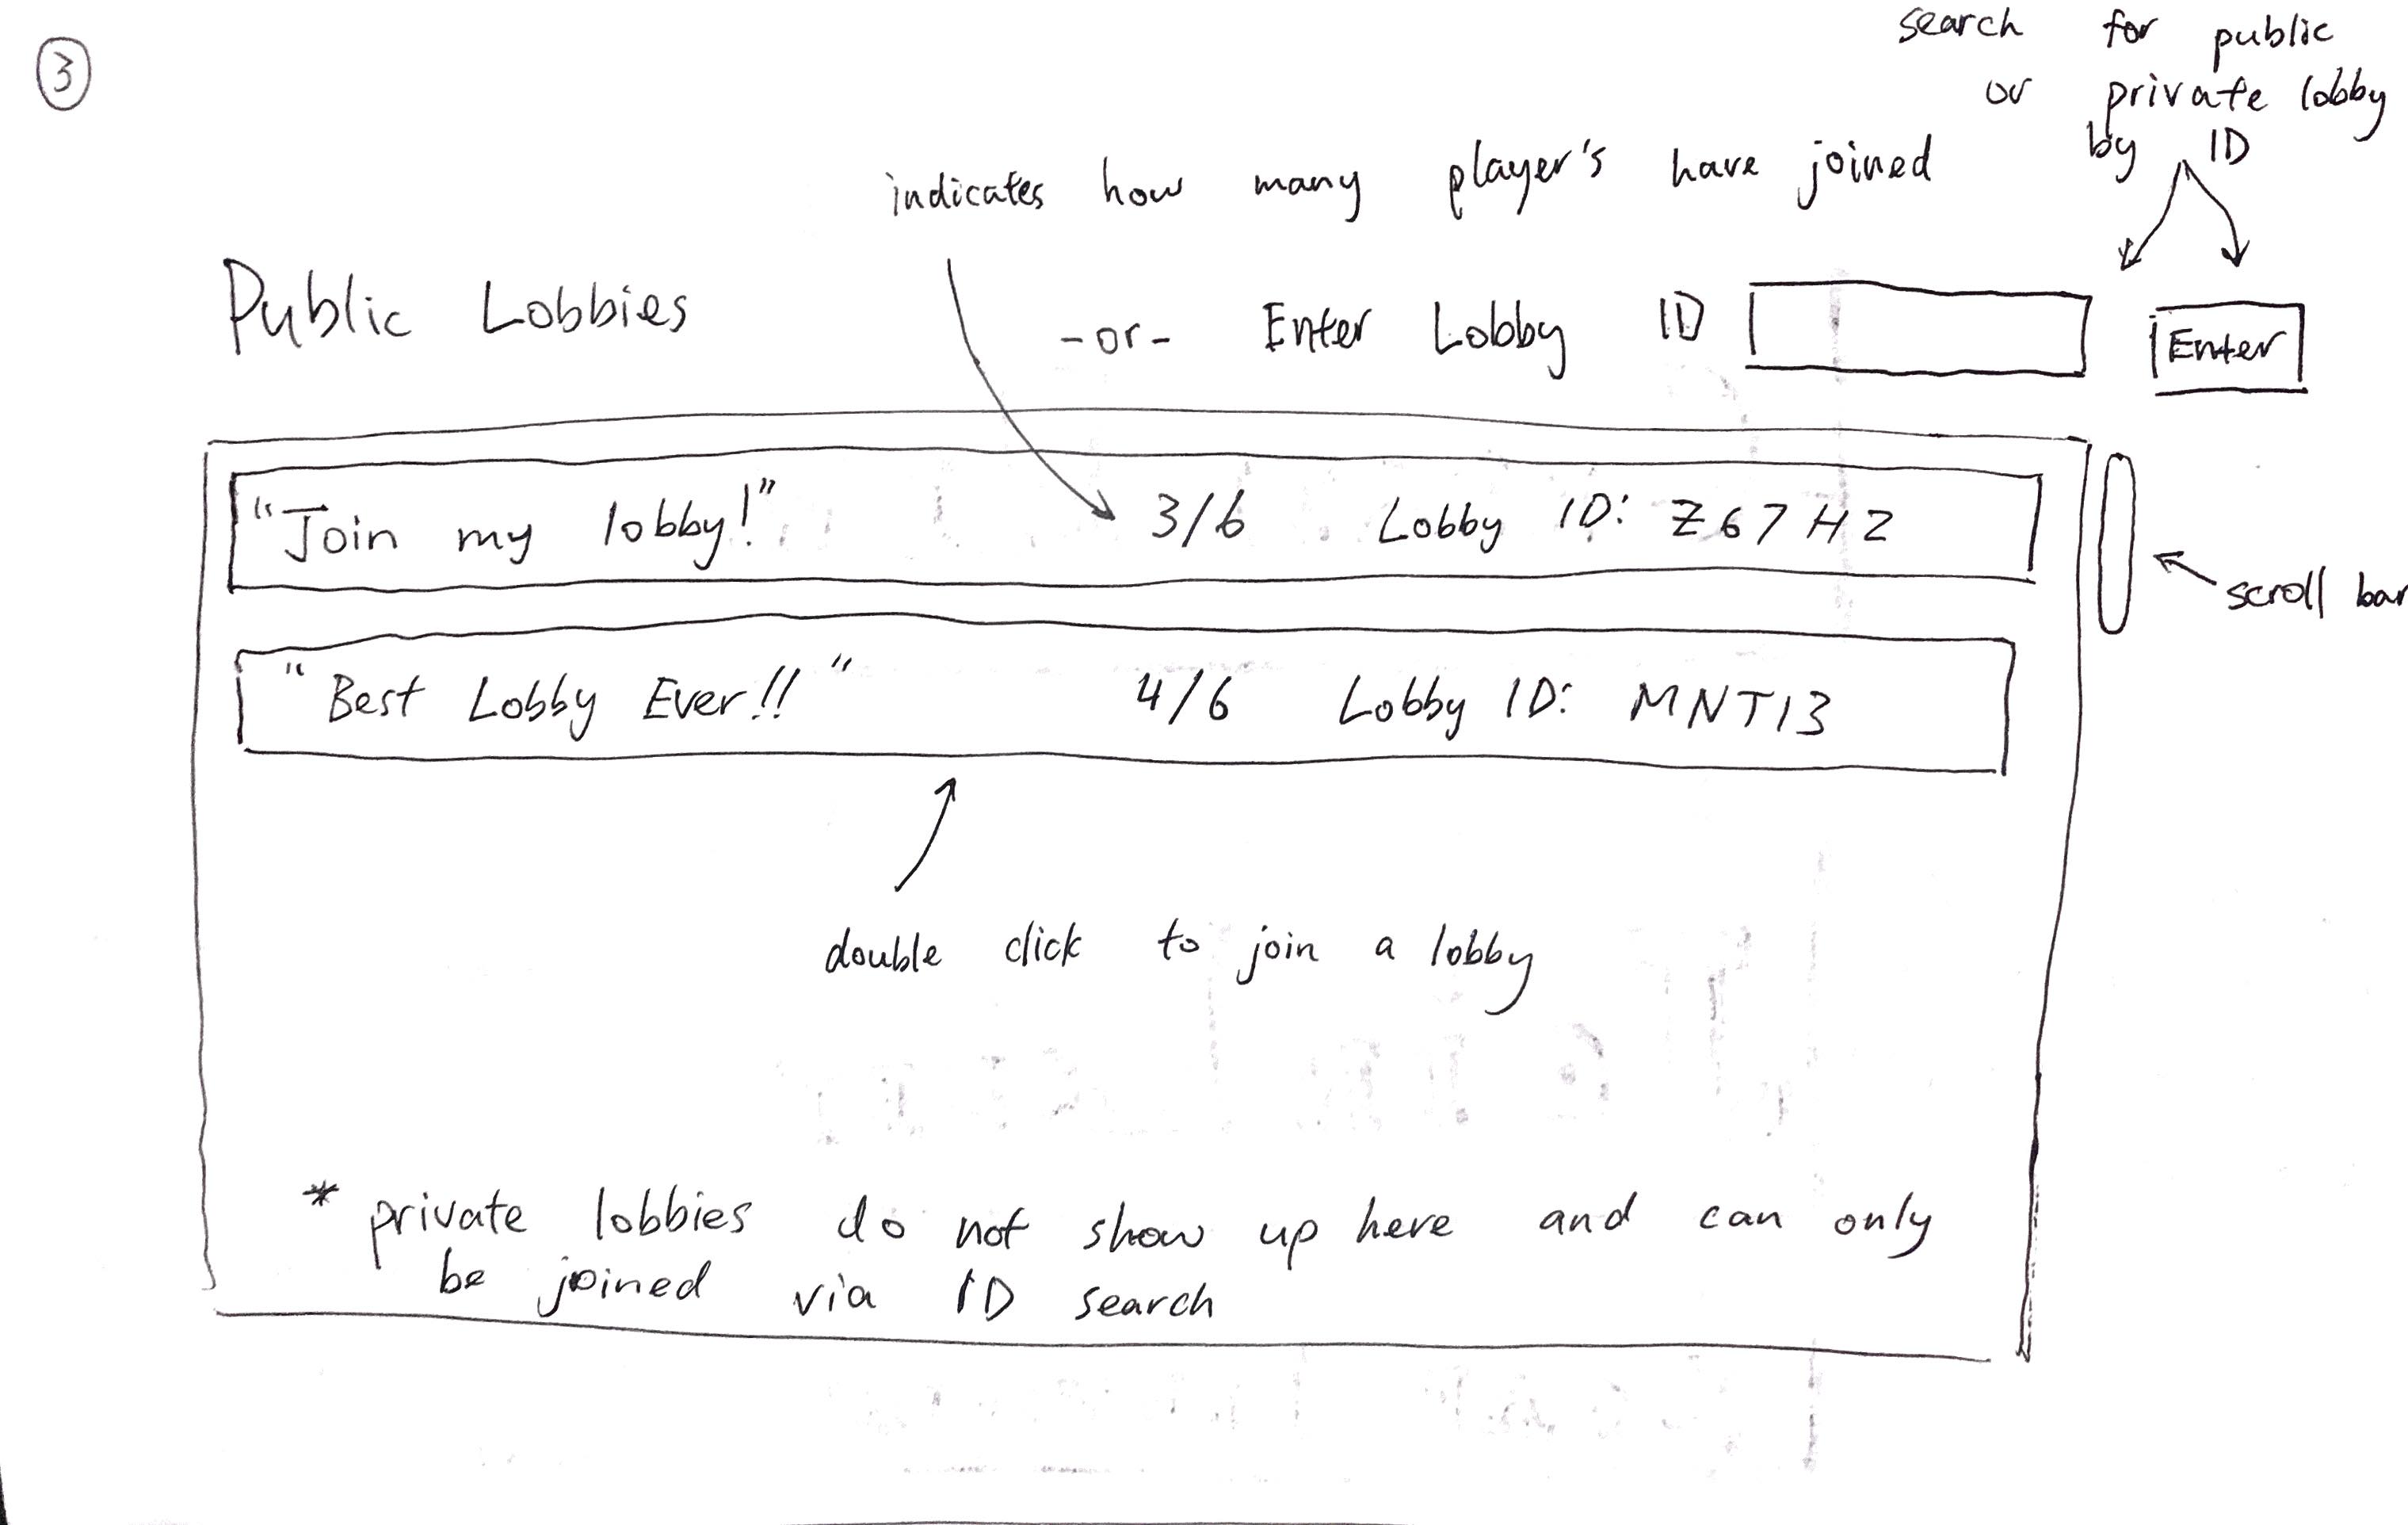 3
search for public
or private lobby
by ID
indicates how many player's have joined
Public Lobbies
-or- Enter Lobby ID
Enter
"Join my lobby!" 3/6 Lobby ID: Z67HZ
scroll bar
"Best Lobby Ever!!" 4/6 Lobby ID: MNT13
double click to join a lobby
* private lobbies do not show up here and can only
be joined via ID search